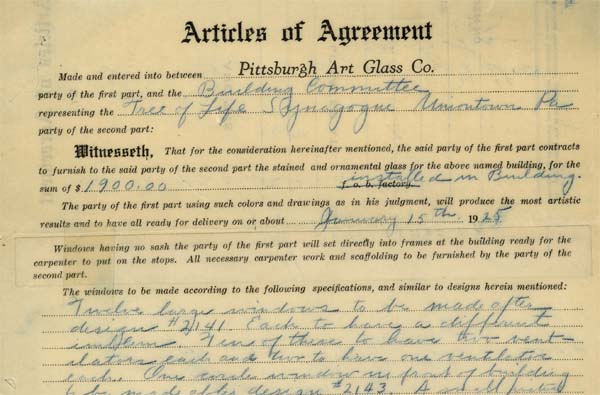 Articles of Agreement
Made and entered into between Pittsburgh Art Glass Co.
party of the first part, and the Building Committee
representing the Tree of Life Synagogue Uniontown Pa
party of the second part:
Witnesseth, That for the consideration hereinafter mentioned, the said party of the first part contracts
to furnish to the said party of the second part the stained and ornamental glass for the above named building, for the
sum of $1900.00 f. o. b. factory. installed in Building.
The party of the first part using such colors and drawings as in his judgment, will produce the most artistic
results and to have all ready for delivery on or about January 15th 1925
Windows having no sash the party of the first part will set directly into frames at the building ready for the
carpenter to put on the stops. All necessary carpenter work and scaffolding to be furnished by the party of the
second part.
The windows to be made according to the following specifications, and similar to designs herein mentioned:
Twelve large windows to be made after
design #2141. Each to have a different
emblem. Ten of these to have two vent-
ilators each and two to have one ventilator
each. One circle window in front of building
to be made after design #2143. A small